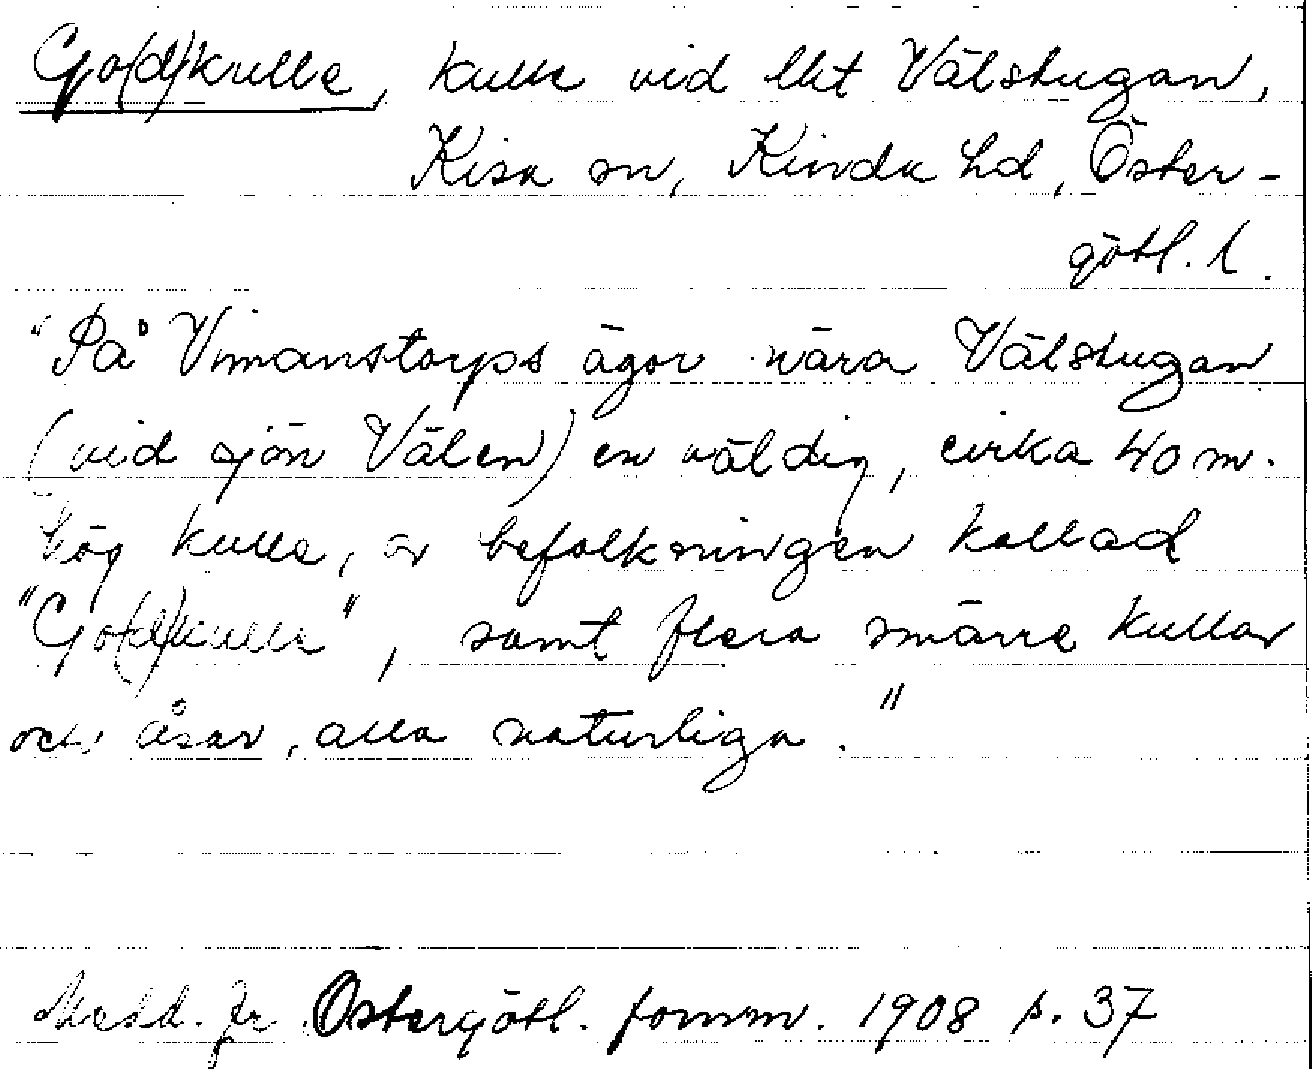 Go(d)kulle, kulle vid lht Välstugan,
Kisa sn, Kinda hd, Öster-
götl. l.
"På Vimanstorps ägor nära Välstugan
(vid sjön Välen) en väldig, cirka 40 m.
hög kulle, av befolkningen kallad
"Go(d)kulle", samt flera smärre kullar
och åsar, alla naturliga."
Medd. fr Östergötl. fornm. 1908 s. 37